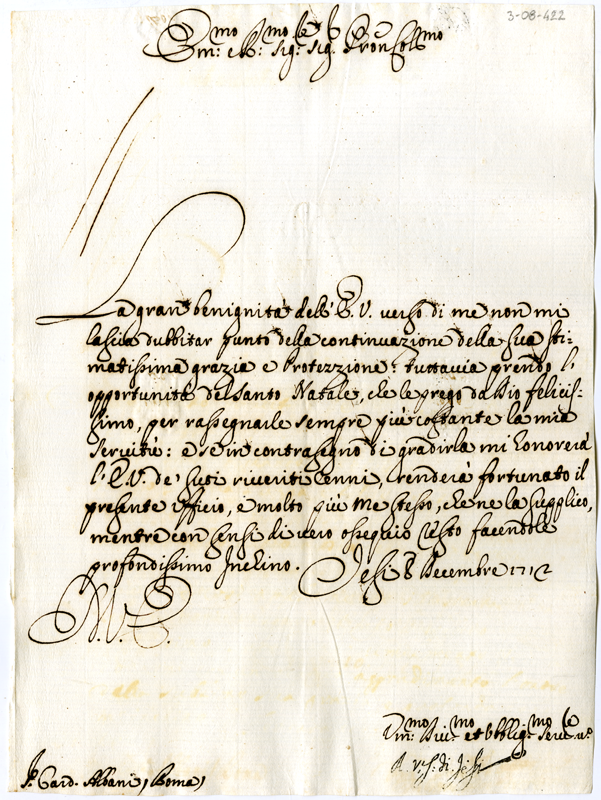 3-08-422
Em:mo e R:mo Sig:re Sig:re Pron Col:mo
La gran benignità dell'E.V. verso di me non mi
lascia dubbitar punto della continuazione della sua sti-
matissima grazia e Protezzione: tuttavia prendo l'
opportunità del Santo Natale, che le prego da Dio felicis-
simo, per rassegnarle sempre più costante la mia
servitù: e se in contrasegno di gradirla mi honorerà
l'E.V. de' suoi riveriti Cenni, renderà fortunato il
presente Ufficio, e molto più me stesso, che ne la supplico,
mentre con sensi di vero ossequio resto facendole
profondissimo Inchino. Jesi 8 Decembre 1712
V. E.
Um:mo Div:mo et Obblig:mo Serv:re
A. V. di Jesi
Sr. Card. Albani, (Roma)